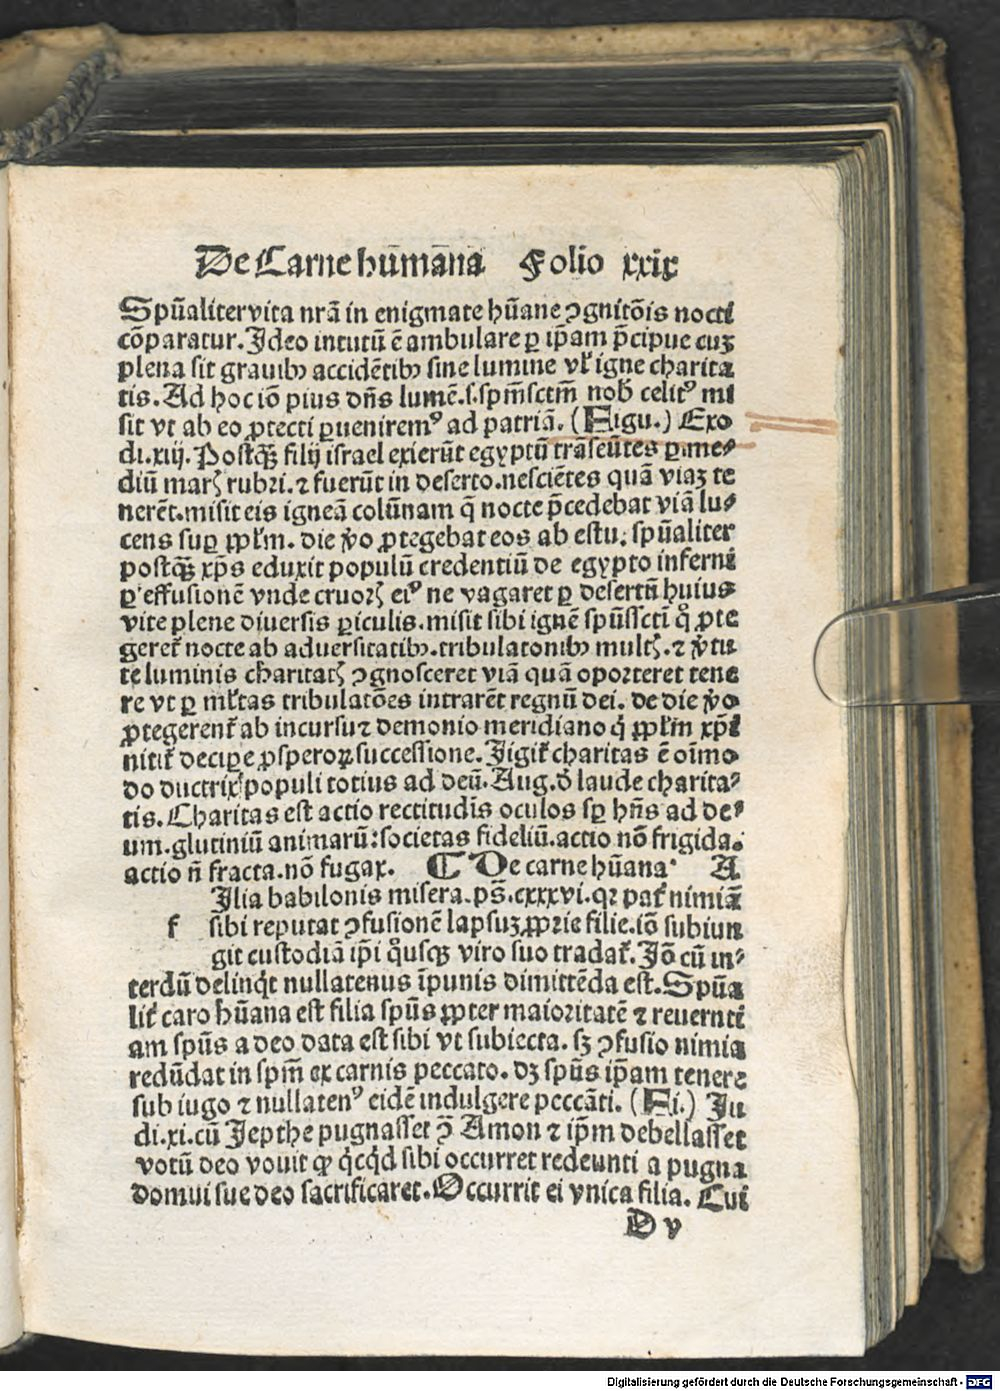 De Carne hūmana Folio xxix
Spūaliter vita nrā in enigmate hūane ꝯgnitōis nocti
cōparatur. Ideo intutū ē ambulare ꝑ ip̄am p̄cipue cuꝫ
plena sit grauibꝰ accidētibꝰ sine lumine vl̓ igne charita
tis. Ad hoc iō pius dn̄s lumē.s.spm̄sctm̄ nob̓ celitꝰ mi
sit vt ab eo ꝓtecti ꝑueniremꝰ ad patriā. (Figu.) Exo
di.xiij. Postꝙ̄ filij israel exierūt egyptū trāseūtes ꝑ me⸗
diū marꝭ rubri.⁊ fuerūt in deserto.nesciētes quā viaꝫ te
nerēt.misit eis igneā colūnam q̄ nocte p̄cedebat viā lu⸗
cens suꝑ ppl̓m. die ꝟo ꝓtegebat eos ab estu. spūaliter
postꝙ̄ xp̄s eduxit populū credentiū de egypto inferni
ꝑ effusionē vnde cruorꝭ eiꝰ ne vagaret ꝑ desertū huius
vite plene diuersis ꝑiculis.misit sibi ignē spūsscti q̊ ꝓte
geret̓ nocte ab aduersitatibꝰ.tribulatonibꝰ multꝭ.⁊ ꝟtu
te luminis charitatꝭ ꝯgnosceret viā quā oporteret tene
re vt ꝑ ml̓tas tribulatōes intrarēt regnū dei. de die ꝟo
ꝓtegerent̓ ab incursu ⁊ demonio meridiano q̇ ppl̓m xp̄i
nitit̓ deciꝑe ꝓsperoꝝ successione. Iigit̓ charitas ē oīmo
do ductrix populi totius ad deū. Aug. d̓ laude charita⸗
tis. Charitas est actio rectitudīs oculos sꝑ hn̄s ad de⸗
um.glutiniū animarū: societas fideliū.actio nō frigida.
actio n̄ fracta.nō fugax. ¶ De carne hūana. A
Ilia babilonis misera.ps̄.cxxxvi.qꝛ pat̓ nimiā
f sibi reputat ꝯfusionē lapsuꝫ ꝓprie filie.iō subiun
git custodiā ip̄i q̊usqꝫ viro suo tradat̓. Iō cū in⸗
terdū delinq̇t nullatenus īpunis dimittēda est. Spūa
lit̓ caro hūana est filia spūs ꝓpter maioritatē ⁊ reuernti
am spūs a deo data est sibi vt subiecta. sꝫ ꝯfusio nimia
redūdat in spm̄ ex carnis peccato. dꝫ spūs ip̄am tenere
sub iugo ⁊ nullatenꝰ eidē indulgere peccāti. (Fi.) Iu
di.xi.cū Iepthe pugnasset ꝯ̄ Amon ⁊ ip̄m debellasset
votū deo vouit ꝙ q̇cq̇d sibi occurret redeunti a pugna
domui sue deo sacrificaret. Occurrit ei vnica filia. Cui
D v
Digitalisierung gefördert durch die Deutsche Forschungsgemeinschaft - DFG